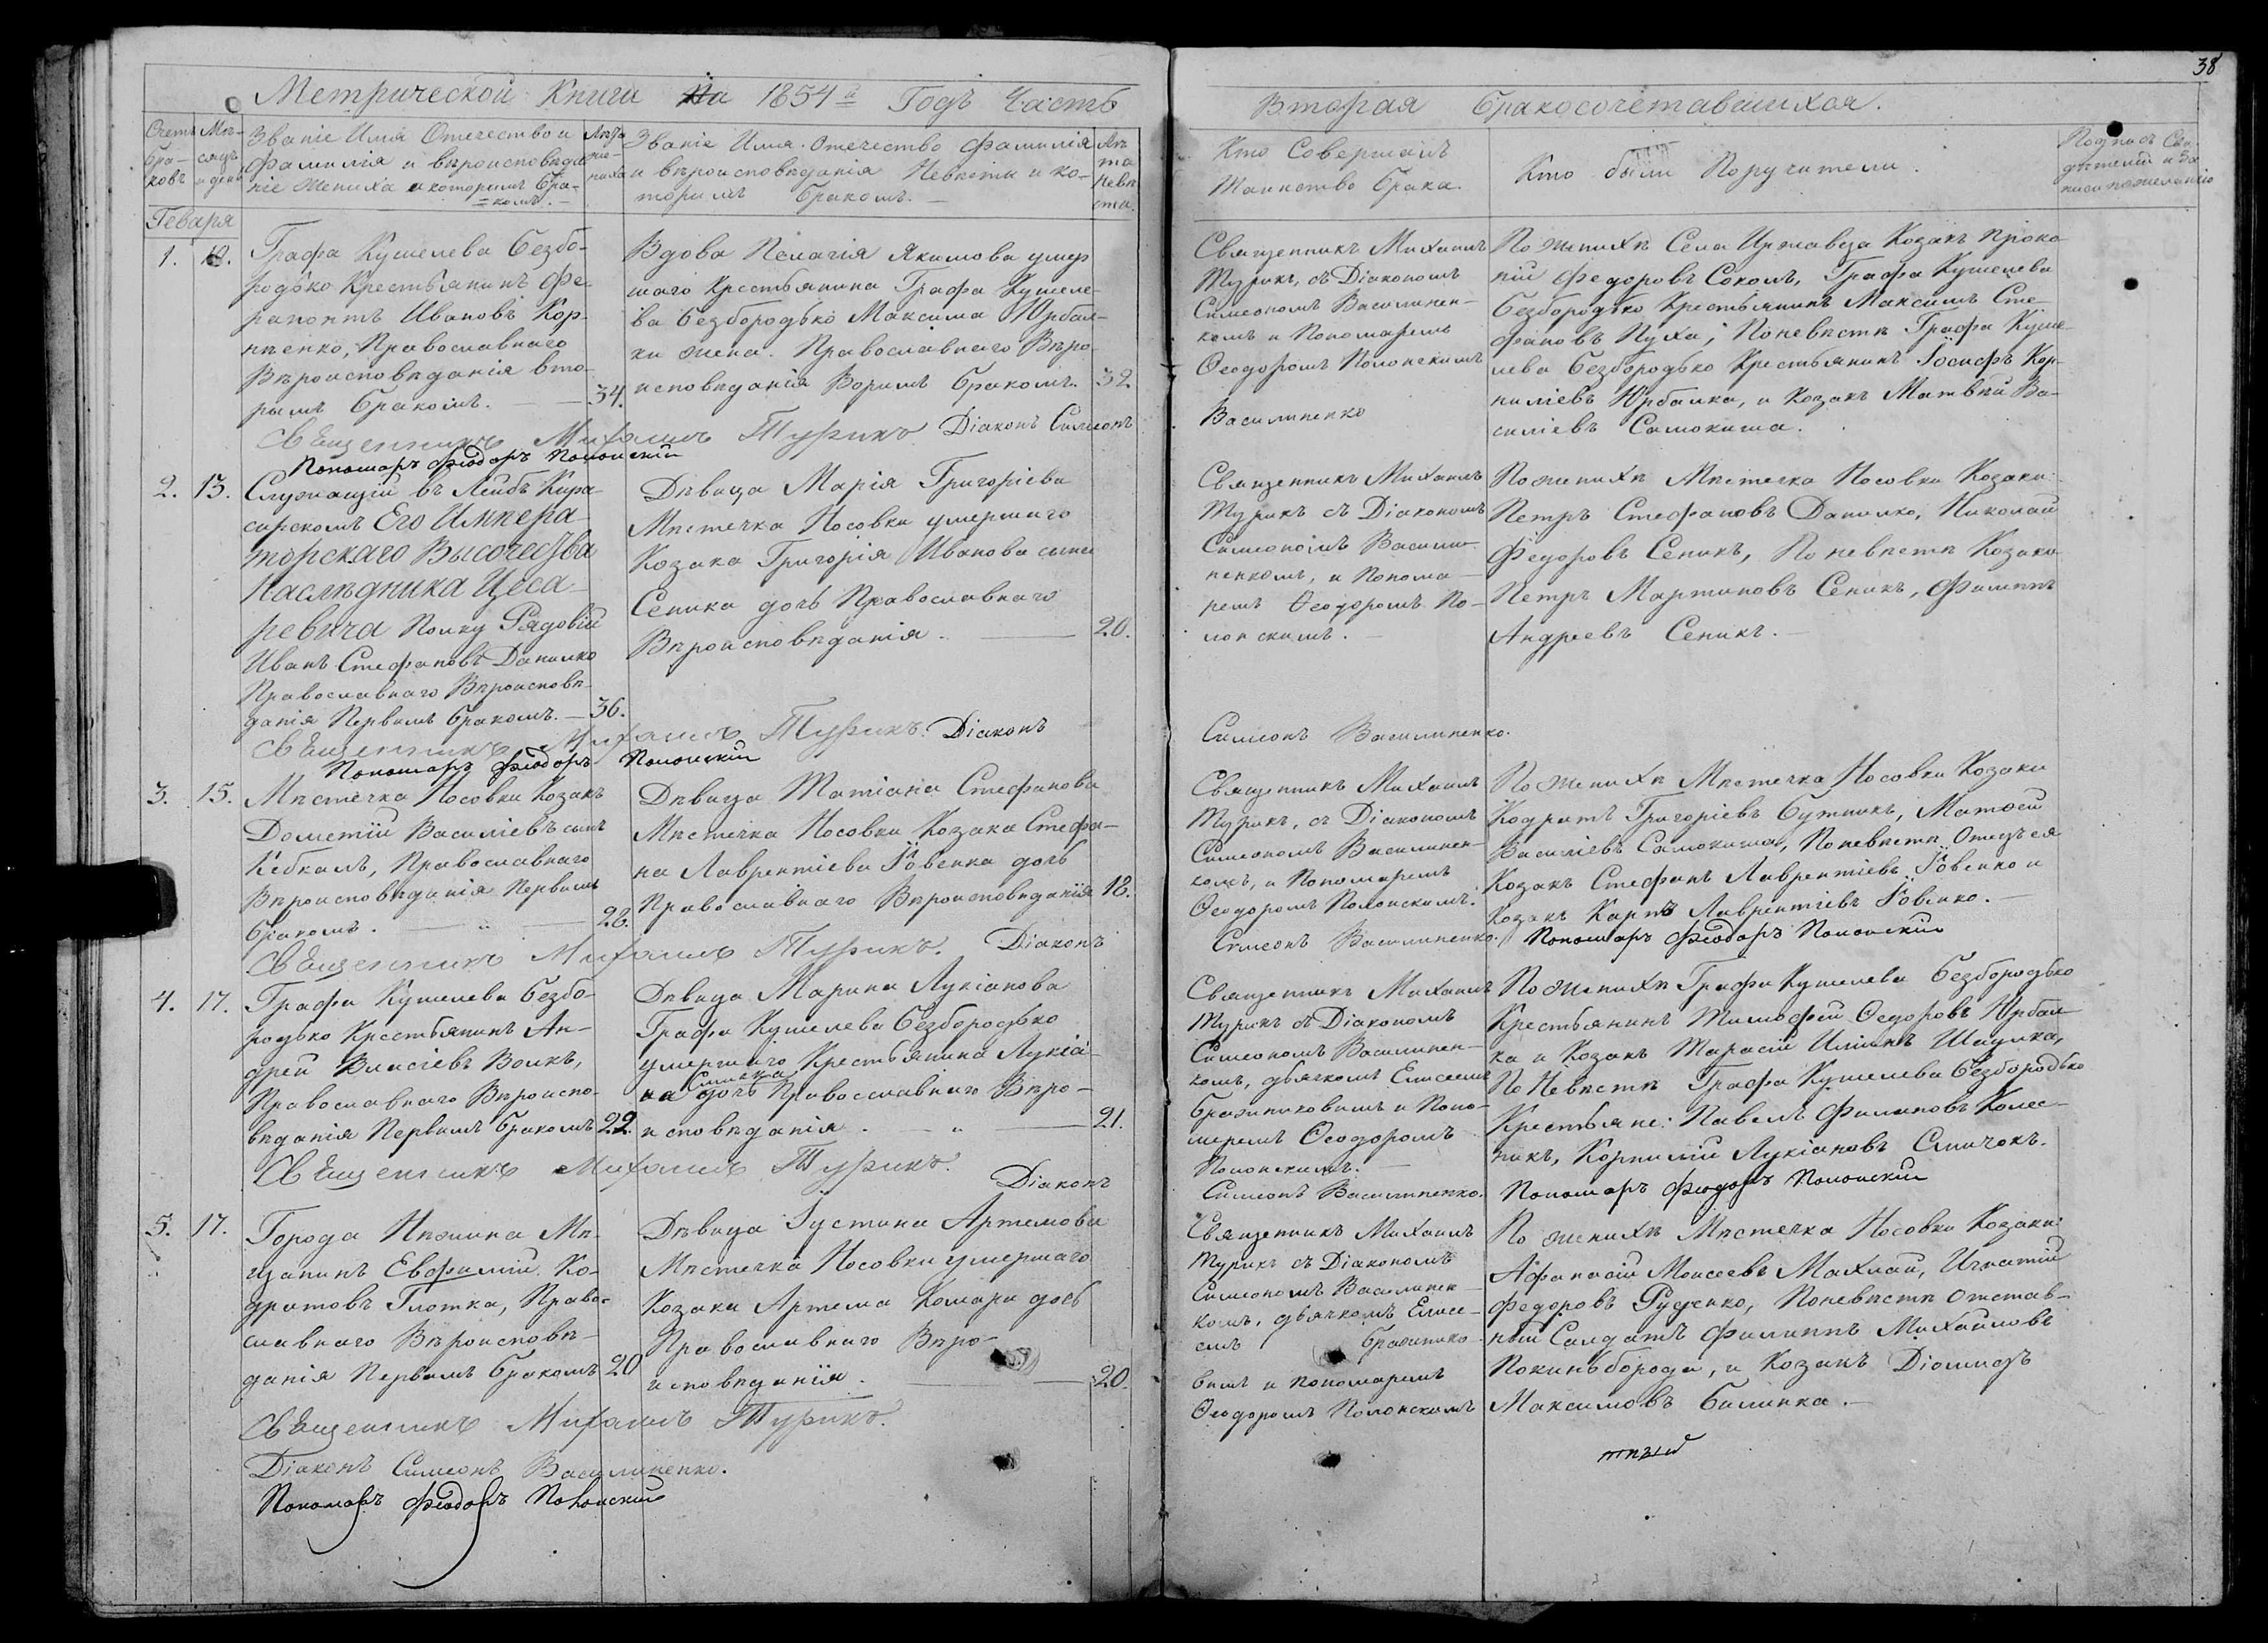 38
Метрической Книги На 1854й Годъ Часть
Вторая бракосочетавшихся.
Счетъ бра-ковъ
Мѣ-сяцъ и день
Званіе Имя Отечество и
фамилія и вѣроисповѣда
ніе жениха и которымъ бра-
=комъ.-
Лѣта же-ниха
Званіе Имя. Отечество фамилія
и вѣроисповѣданія Невѣсты и ко-
торымъ бракомъ.-
Лѣ та невѣ ста.
Кто Совершалъ
Таинство брака.
Кто были Поручители.
Подпись Сви-
дѣтелей и За
писи по желанію
Генваря
1.
Графа Кушелева безбо-
родько Крестьянинъ Фе
рапонтъ Ивановъ Кор-
нѣенко, Православнаго
Вѣроисповѣданія вто-
рымъ бракомъ. — 34.
Вдова Пелагія Якимова умер
шаго Крестьянина Графа Кушеле-
ва безбородько Максима Юрбал-
ки жена. Православнаго Вѣро
исповѣданія Ворымъ бракомъ. 32.
Священникъ Михаилъ
Турикъ, съ Діакономъ
Симеономъ Василинен-
комъ и Пономаремъ
Ѳеодоромъ Полонскимъ
По женихѣ Села Иржавца Козакъ Проко
пій Федоровъ Соколъ, Графа Кушелева
безбородько Крестьянинъ Максимъ Сте-
фановъ Пуха; По невѣстѣ Графа Куше-
лева безбородько Крестьянинъ Іосифъ Кор-
ниліевъ Юрбалка, и Козакъ Матвѣй Ва-
силіевъ Самокиша.
Священникъ Михаилъ Турикъ. Діаконъ Симеонъ
Василиненко
Пономаръ Феодоръ Полонскій
2. 13.
Служащій въ Лейбъ Кира
сирскомъ Его Импера
торскаго Высочества
Наслѣдника Цеса-
ревича Полку Рядовій
Иванъ Стефановъ Данилко
Православнаго Вѣроисповѣ-
данія Первымъ бракомъ. — 36.
Дѣвица Марія Григоріева
Мѣстечка Носовки умершаго
Козака Григорія Иванова сына
Сеника дочь Православнаго
Вѣроисповѣданія. — 20.
Священникъ Михаилъ
Турикъ съ Діакономъ
Симеономъ Васили-
ненкомъ, и Понома-
ремъ Ѳеодоромъ По-
лонскимъ.-
По женихѣ Мѣстечка Носовки Козаки
Петръ Стефановъ Данилко, Николай
Федоровъ Сеникъ, По невѣстѣ Козаки
Петръ Мартиновъ Сеникъ, Филиппъ
Андреевъ Сеникъ.-
Священникъ Михаилъ Турикъ. Діаконъ
Симеонъ Василиненко.
Пономаръ Феодоръ Полонскій
3. 15.
Мѣстечка Носовки Козакъ
Дометій Василіевъ сынъ
Кебкалъ, Православнаго
Вѣроисповѣданія Первымъ
бракомъ. — 28.
Дѣвица Татіана Стефанова
Мѣстечка Носовки Козака Стефа-
на Лаврентіева Іовенка дочь
Православнаго Вѣроисповѣданія 18.
Священникъ Михаилъ
Турикъ, съ Діакономъ
Симеономъ Василинен-
комъ, и Пономаремъ
Ѳеодоромъ Полонскимъ.
По женихѣ Мѣстечка Носовки Козаки
Кодратъ Григоріевъ Бутникъ, Матѳей
Василіевъ Самокиша, По невѣстѣ Отецъ ея
Козакъ Стефанъ Лаврентіевъ Іовенко и
Козакъ Карпъ Лаврентіевъ Іовенко.-
Священникъ Михаилъ Турикъ. Діаконъ
Симеонъ Василиненко. Пономаръ Феодоръ Полонскій
4. 17.
Графа Кушелева безбо-
родько Крестьянинъ Ан-
дрей Власіевъ Волкъ,
Православнаго Вѣроиспо-
вѣданія Первымъ бракомъ 22.
Дѣвица Марина Лукіанова
Графа Кушелева безбородько
умершаго Крестьянина Лукіа-
на Смичка дочь Православнаго Вѣро-
исповѣданія. — 21.
Священникъ Михаилъ
Турикъ съ Діакономъ
Симеономъ Василинен-
комъ, дьячкомъ Елисеемъ
бражниковымъ и Поно-
маремъ Ѳеодоромъ
Полонскимъ.
По женихѣ Графа Кушелева безбородько
Крестьянинъ Тимофей Ѳедоровъ Юрбал
ка и Козакъ Тарасій Иліинъ Шацика,
По Невѣстѣ Графа Кушелева безбородько
Крестьяне: Павелъ Филиповъ Колес-
никъ, Корнилій Лукіановъ Смичокъ.
Священникъ Михаилъ Турикъ. Діаконъ
Симеонъ Василиненко. Пономаръ Феодоръ Полонскій
5. 17.
Города Нѣжина Мѣ-
щанинъ Евфимій Ко-
дратовъ Глотка, Право-
славнаго Вѣроисповѣ-
данія Первымъ бракомъ 20
Дѣвица Іустина Артемова
Мѣстечка Носовки умершаго
Козака Артема Комара дочь
Православнаго Вѣро-
исповѣданія. — 20.
Священникъ Михаилъ
Турикъ съ Діакономъ
Симеономъ Василинен-
комъ, дьячкомъ Елисе-
емъ бражнико-
вымъ и Пономаремъ
Ѳеодоромъ Полонскимъ
По женихѣ Мѣстечка Носовки Козаки:
Афанасій Моисеевъ Махлай, Игнатій
Федоровъ Руденко, По невѣстѣ отстав-
ный Салдатъ Филиппъ Михайловъ
Покиньборода, и Козакъ Діомидъ
Максимовъ Билинка.-
Священникъ Михаилъ Турикъ.
Діаконъ Симеонъ Василиненко.
Пономаръ Феодоръ Полонскій